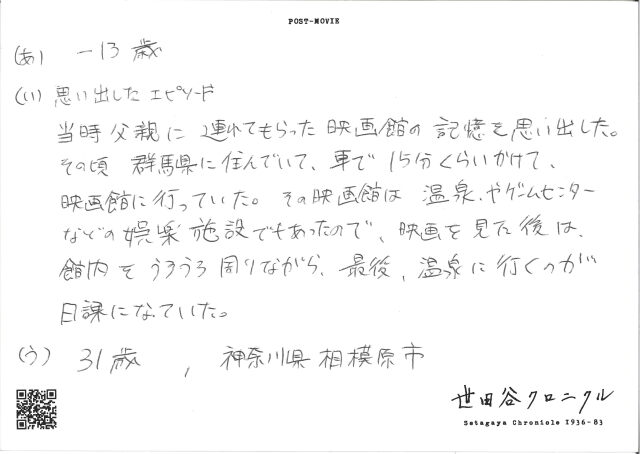 POST-MOVIE
(あ) -13歳
(い) 思い出したエピソード
当時父親に連れてもらった映画館の記憶を思い出した。
その頃 群馬県に住んでいて、車で15分くらいかけて、
映画館に行っていた。その映画館は 温泉やゲームセンター
などの娯楽施設でもあったので、映画を見た後は、
館内をうろうろ周りながら、最後、温泉に行くのが
日課になっていた。
(う) 31歳 , 神奈川県相模原市
世田谷クロニクル
Setagaya Chronicle 1936-83